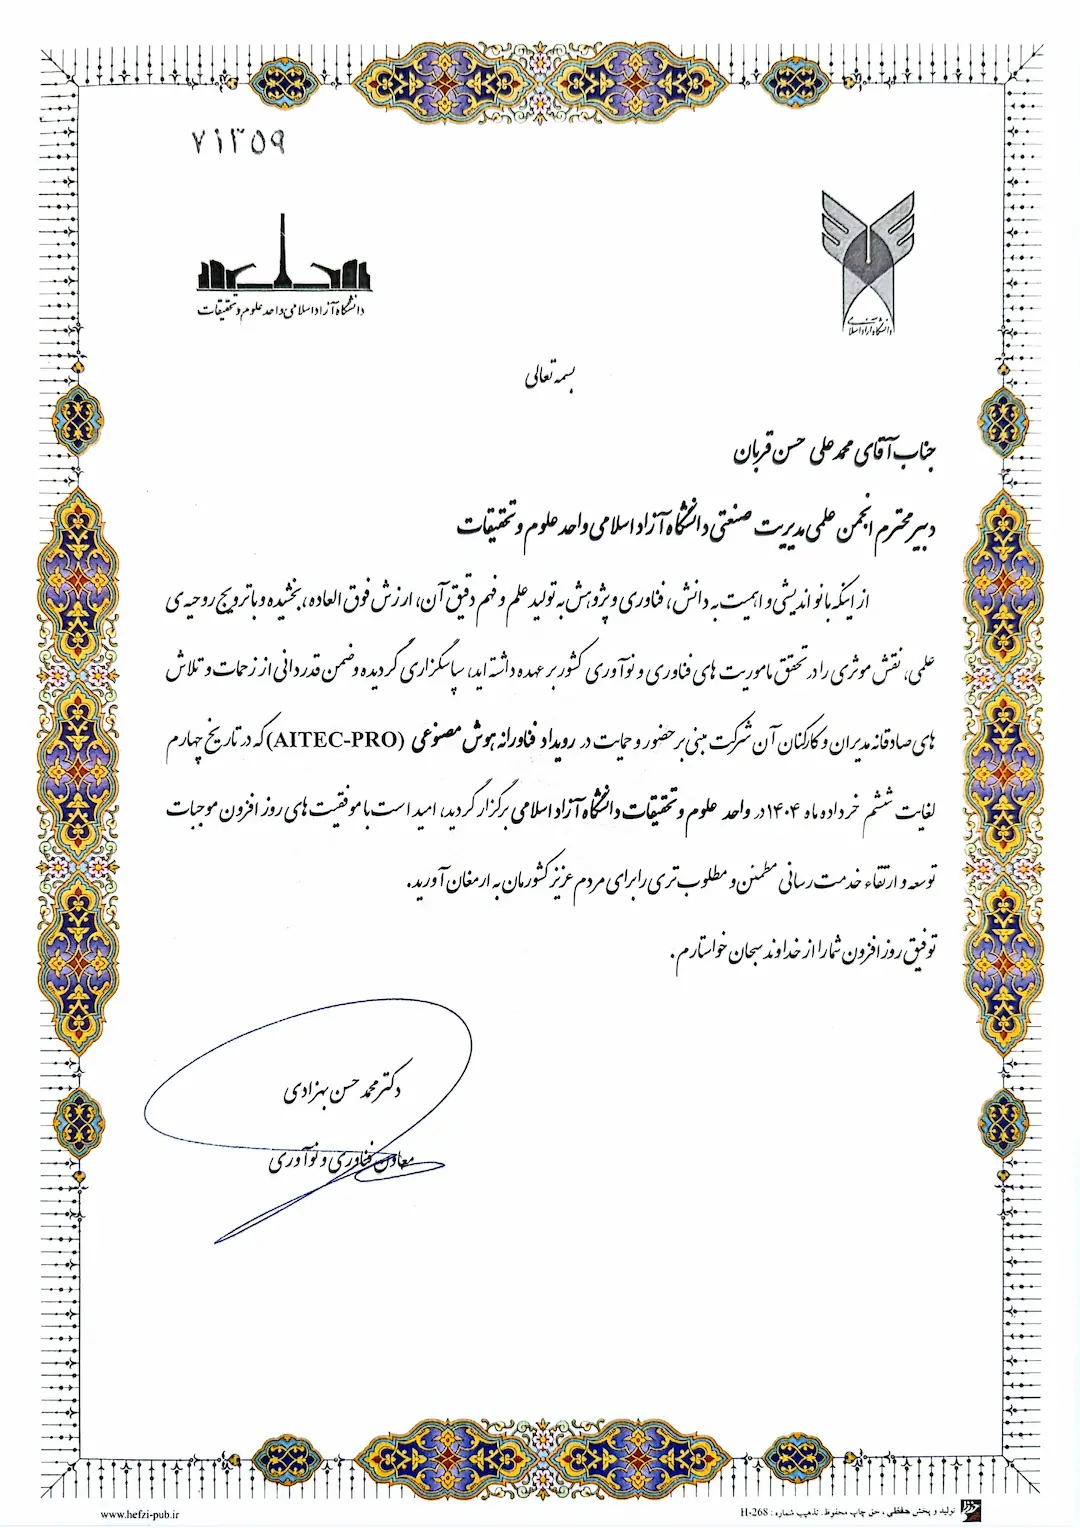 ۷۱۳۵۹
دانشگاه آزاد اسلامی واحد علوم و تحقیقات
دانشگاه آزاد اسلامی
بسمه تعالی
جناب آقای محمد علی حسن قربان
دبیر محترم انجمن علمی مدیریت صنعتی دانشگاه آزاد اسلامی واحد علوم و تحقیقات
از اینکه با نواندیشی و اهمیت به دانش، فناوری و پژوهش به تولید علم و فهم دقیق آن، ارزش فوق العاده، بخشیده و با ترویج روحیه‌ی
علمی، نقش موثری را در تحقق ماموریت های فناوری و نوآوری کشور بر عهده داشته اید، سپاسگزاری گردیده و ضمن قدردانی از زحمات و تلاش
های صادقانه مدیران و کارکنان آن شرکت مبنی بر حضور و حمایت در رویداد فناورانه هوش مصنوعی (AITEC-PRO) که در تاریخ چهارم
لغایت ششم خرداد ماه ۱۴۰۴ در واحد علوم و تحقیقات دانشگاه آزاد اسلامی برگزار گردید، امید است با موفقیت های روز افزون موجبات
توسعه و ارتقاء خدمت رسانی مطمئن و مطلوب تری را برای مردم عزیز کشورمان به ارمغان آورید.
توفیق روز افزون شما را از خداوند سبحان خواستارم.
دکتر محمد حسن بهزادی
معاون فناوری و نوآوری
تولید و پخش حفظی ، حق چاپ محفوظ. تذهیب شماره : H-268
www.hefzi-pub.ir